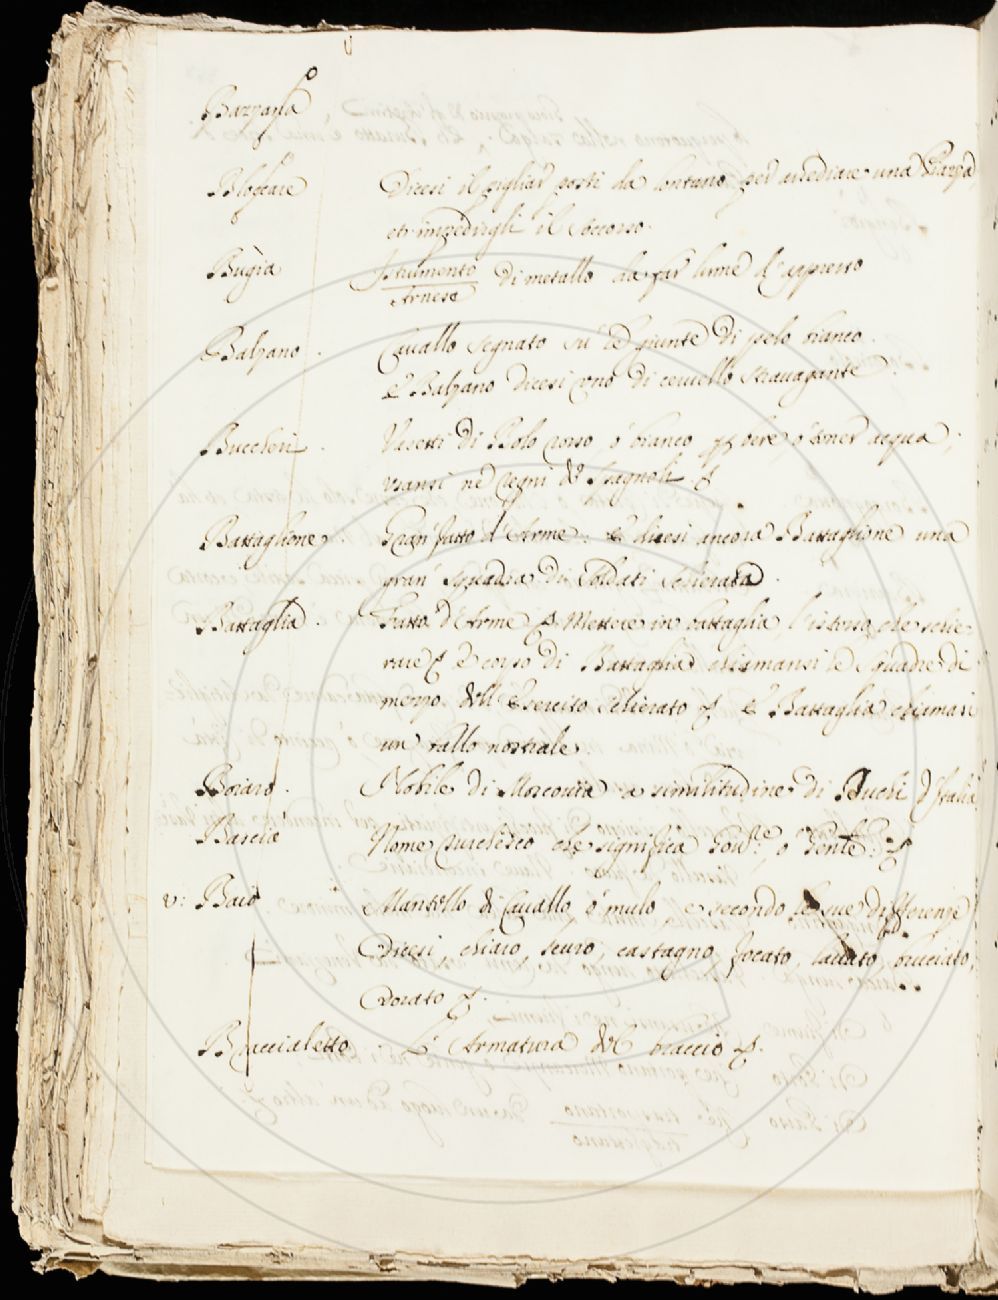 Bazzana
Bloccare Dicesi il pigliar posti da lontano per assediare una Piazza,
et impedirgli il soccorso.
Bugia Istrumento di metallo da far lume d'appresso
Arnese
Balzano. Cavallo segnato sù le giunte di pelo bianco.
e Balzano dicesi uno di cervello stravagante.
Buccheri. Vasetti di Bolo rosso, ò bianco per bere, ò tener acqua,
usansi ne Regni di Spagna
Battaglione Gran fatto d'Arme: e dicesi ancora Battaglione una
gran squadra di Soldati schierata.
Battaglia. Fatto d'Arme Mettere in battaglia, l'istesso che schie-
rare e corso di Battaglia chiamansi le squadre di
mezzo dell'Esercito schierato e Battaglia chiamasi
un ballo nostrale.
Boiaro. Nobile di Moscovia a similitudine di Duchi d'Italia
Barcia Nome Turchesco che significa
v: Baio Mantello di Cavallo, ò mulo, e secondo le sue differenze
Dicesi, chiaro, scuro, castagno, focato, lavato, bruciato,
dorato
Braccialetto. L'Armatura del braccio